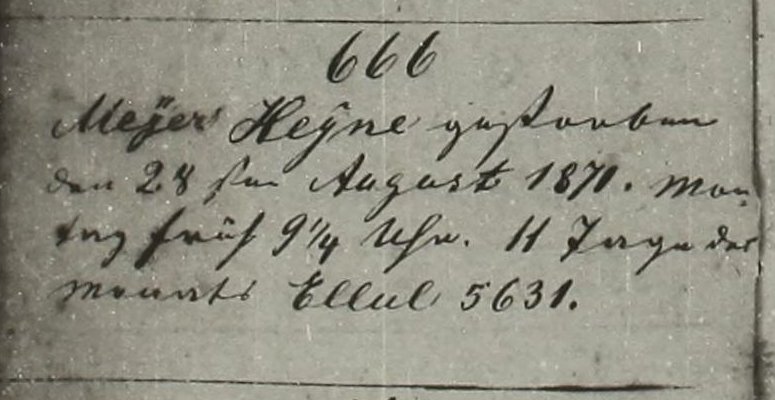 666
Meÿer Heÿne gestorben
den 28sten August 1871. Mon-
tag früh 9 1/4 Uhr. 11 Tage des
Monats Ellul 5631.